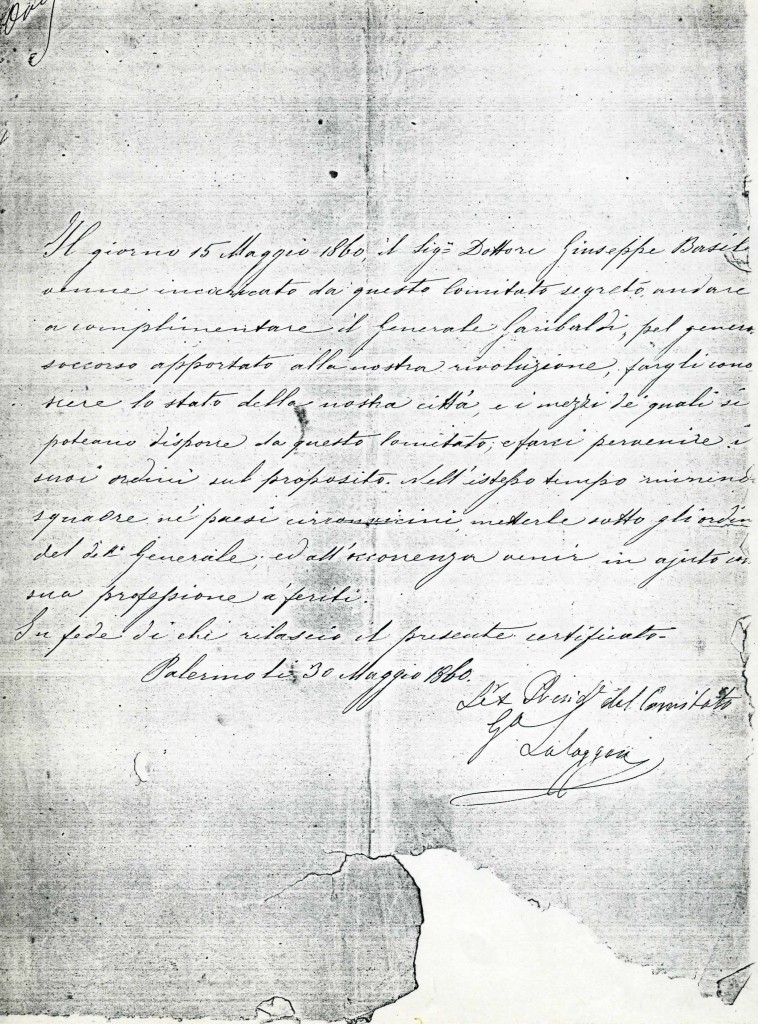 Il giorno 15 Maggio 1860, il Sigr. Dottore Giuseppe Basile
venne incaricato da questo Comitato segreto, andare
a complimentare il Generale Garibaldi, pel genero
soccorso apportato alla nostra rivoluzione, fargli cono
scere lo stato della nostra città, e i mezzi de' quali si
poteano disporre da questo Comitato; e farci pervenire i
suoi ordini sul proposito. Nell'istesso tempo riunendo
squadre ne' paesi circonvicini metterle sotto gli ordin
del detto Generale; ed all'occorrenza venir in ajuto con
sua professione a' feriti
In fede di che rilascio il presente certificato-
Palermo li 30 Maggio 1860.
del Comitato